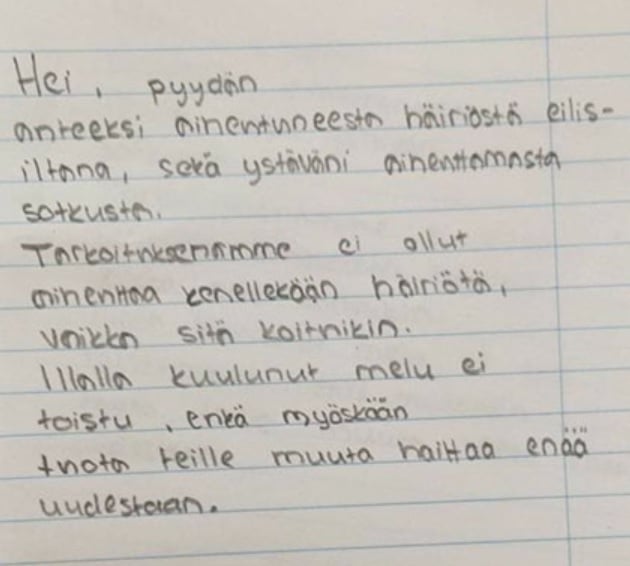 Hei, pyydän
anteeksi aiheutuneesta häiriöstä eilis-
iltana, sekä ystäväni aiheuttamasta
sotkusta.
Tarkoituksenamme ei ollut
aiheuttaa kenellekään häiriötä,
vaikka sitä koituikin.
Illalla kuulunut melu ei
toistu, enkä myöskään
tuota teille muuta haittaa enää
uudestaan.